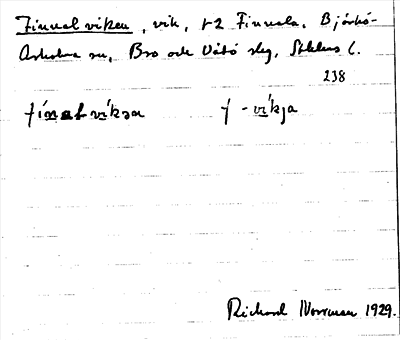 Finnalviken, vik, 1-2 Finnala, Björkö-
Arholma sn, Bro och Vätö slg, Sthlms l.
238
fínalvíkjɑ f -víkja
Richard Norrman 1929.